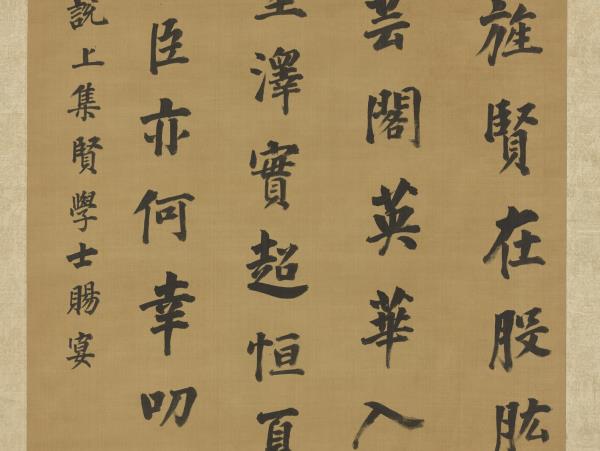 旌賢在股肱
芸閣英華入
澤實超恒
臣亦何幸叨
說上集賢學士賜宴